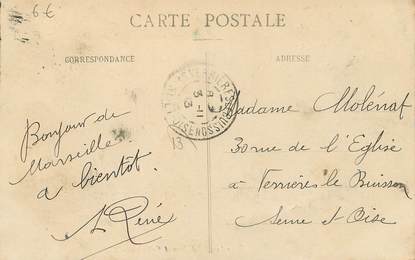 6€
CARTE POSTALE
CORRESPONDANCE
ADRESSE
Bonjour de
Marseille.
a bientôt.
René
13
Madame Molénat
30 rue de l'Eglise
à Verrières le Buisson
Seine et Oise